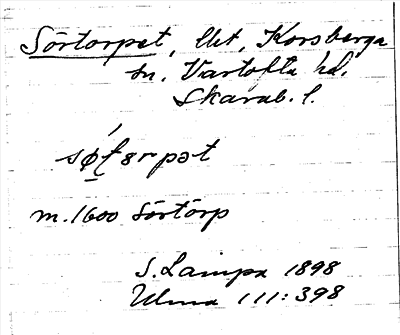 Sörtorpet, lht, Korsberga
sn, Vartofta hd.
Skarab. l.
m. 1600 Sörtorp
S. Lampa 1898
Ulma 111:398